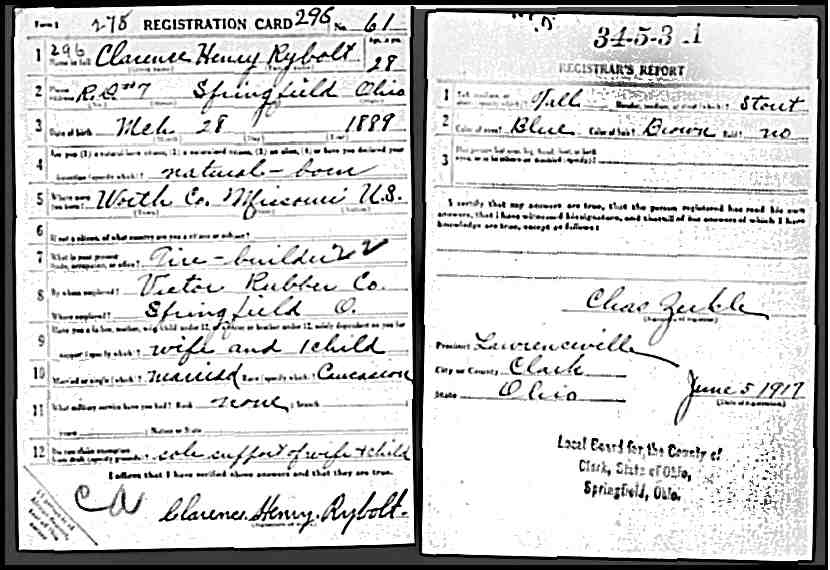 Form 1 275 REGISTRATION CARD 296 No. 61
1 296 Name in full Clarence Henry Rybolt Age, in yrs. 28
(Given name) (Family name)
2 Home address R.D. #7 Springfield Ohio
(No.) (Street) (City) (State)
3 Date of birth Mch 28 1889
(Month) (Day) (Year)
4 Are you (1) a natural-born citizen, (2) a naturalized citizen, (3) an alien, (4) or have you declared your
intention (specify which)? natural-born
5 Where were you born? Worth Co. Missouri U.S.
(Town) (State) (Nation)
6 If not a citizen, of what country are you a citizen or subject?
7 What is your present trade, occupation, or office? Tire-builder 22
8 By whom employed? Victor Rubber Co.
Where employed? Springfield O.
9 Have you a father, mother, wife, child under 12, or a sister or brother under 12, solely dependent on you for
support (specify which)? wife and 1 child
10 Married or single (which)? married Race (specify which)? Caucasion
11 What military service have you had? Rank none ; branch
years ; Nation or State
12 Do you claim exemption from draft (specify grounds)? sole support of wife + child
I affirm that I have verified above answers and that they are true.
Clarence. Henry. Rybolt.
34-5-3 .1
REGISTRAR'S REPORT
1 Tall, medium, or short (specify which)? Tall Slender, medium, or stout (which)? Stout
2 Color of eyes? Blue Color of hair? Brown Bald? no
3 Has person lost arm, leg, hand, foot, or both
eyes, or is he otherwise disabled (specify)?
I certify that my answers are true, that the person registered has read his own
answers, that I have witnessed his signature, and that all of his answers of which I have
knowledge are true, except as follows:
Chas Zerkle
(Signature of registrar)
Precinct Lawrenceville
City or County Clark
State Ohio June 5 1917
(Date of registration)
Local Board for the County of
Clark, State of Ohio,
Springfield, Ohio.